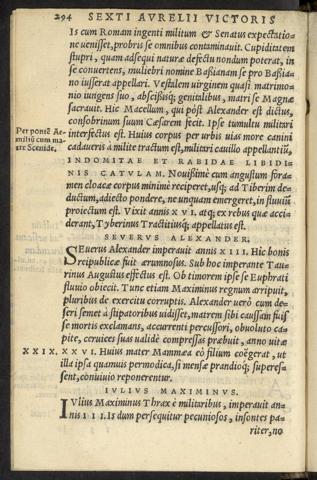 294 SEXTI AVRELII VICTORIS
Is cum Romam ingenti militum & Senatus expectatio=
ne uenisset, probris se omnibus contaminauit. Cupiditatem
stupri, quam adsequi naturæ defectu nondum poterat, in
se conuertens, muliebri nomine Baßianam se pro Baßia=
no iusserat appellari. Vestalem uirginem quasi matrimo=
nio iungens suo, abscißisq; genitalibus, matri se Magnæ
sacrauit. Hic Macellum, qui pòst Alexander est dictus,
consobrinum suum Cæsarem fecit. Ipse tumultu militari
Per pontẽ Ae=
milliũ cum ma=
tre Scenide.
interfectus est. Huius corpus per urbis uias more canini
cadaueris à milite tractum est, militari cauillo appellantiũ,
INDOMITAE ET RABIDAE LIBIDI=
NIS CATVLAM. Nouißimè cum angustum fora=
men cloacæ corpus minimè reciperet, usq; ad Tiberim de=
ductum, adiecto pondere, ne unquam emergeret, in fluuiũ
proiectum est. Vixit annis XVI. atq; ex rebus quæ acci=
derant, Tyberinus Tractitiusq; appellatus est.
SEVERVS ALEXANDER.
SEuerus Alexander imperauit annis XIII. Hic bonis
reipublicæ fuit ærumnosus. Sub hoc imperante Tau=
rinus Augustus effectus est. Ob timorem ipse se Euphrati
fluuio obiecit. Tunc etiam Maximinus regnum arripuit,
pluribus de exercitu corruptis. Alexander uerò cum de=
seri semet à stipatoribus uidisset, matrem sibi caussam fuisse
se mortis exclamans, accurrenti percussori, obuoluto ca=
pite, ceruices suas ualidè compressàs præbuit, anno uitæ
XXIX. XXVI. Huius mater Mammæa eò filium coëgerat, ut
illa ipsa quamuis permodica, si mensæ prandioq; superes=
sent, conuiuio reponerentur.
IVLIVS MAXIMINVS.
IVlius Maximinus Thrax è militaribus, imperauit an=
nis III. Is dum persequitur pecuniosos, insontes pa=
riter, no